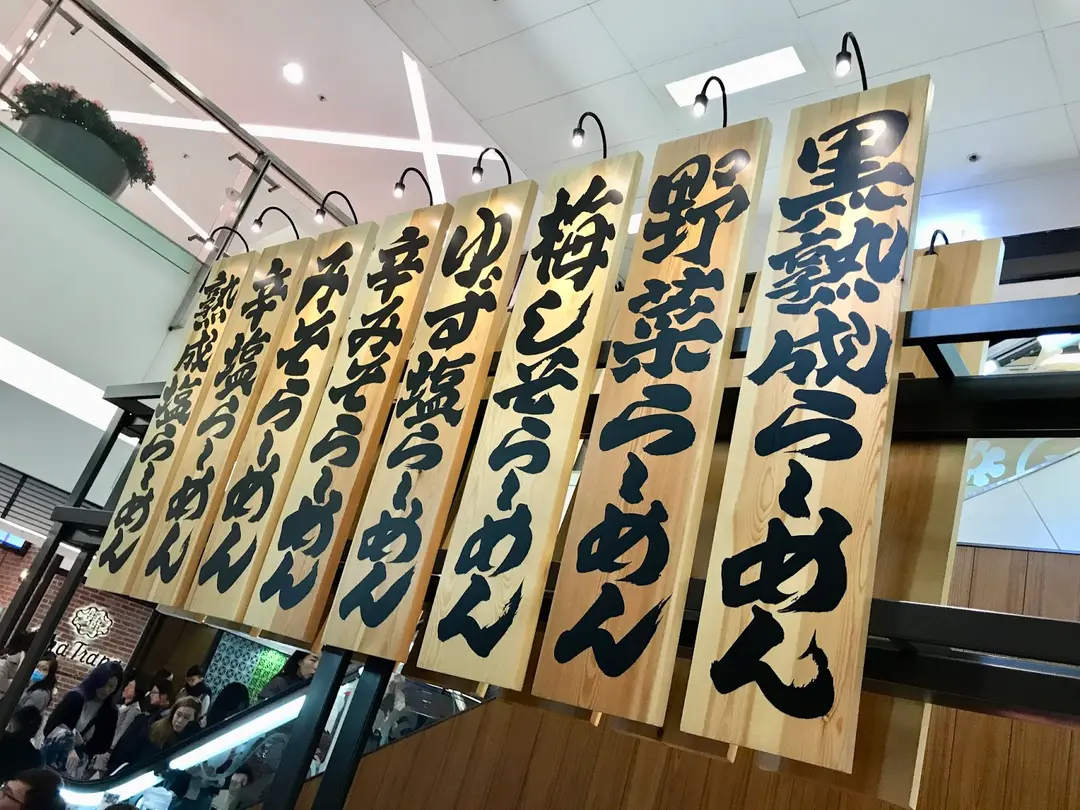 黒熟成らーめん
野菜らーめん
梅しそらーめん
ゆず塩らーめん
辛みそらーめん
みそらーめん
辛塩らーめん
熟成塩らーめん